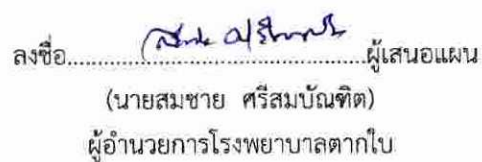 ลงชื่อ.......................................................ผู้เสนอแผน
(นายสมชาย ศรีสมบัณฑิต)
ผู้อำนวยการโรงพยาบาลตากใบ